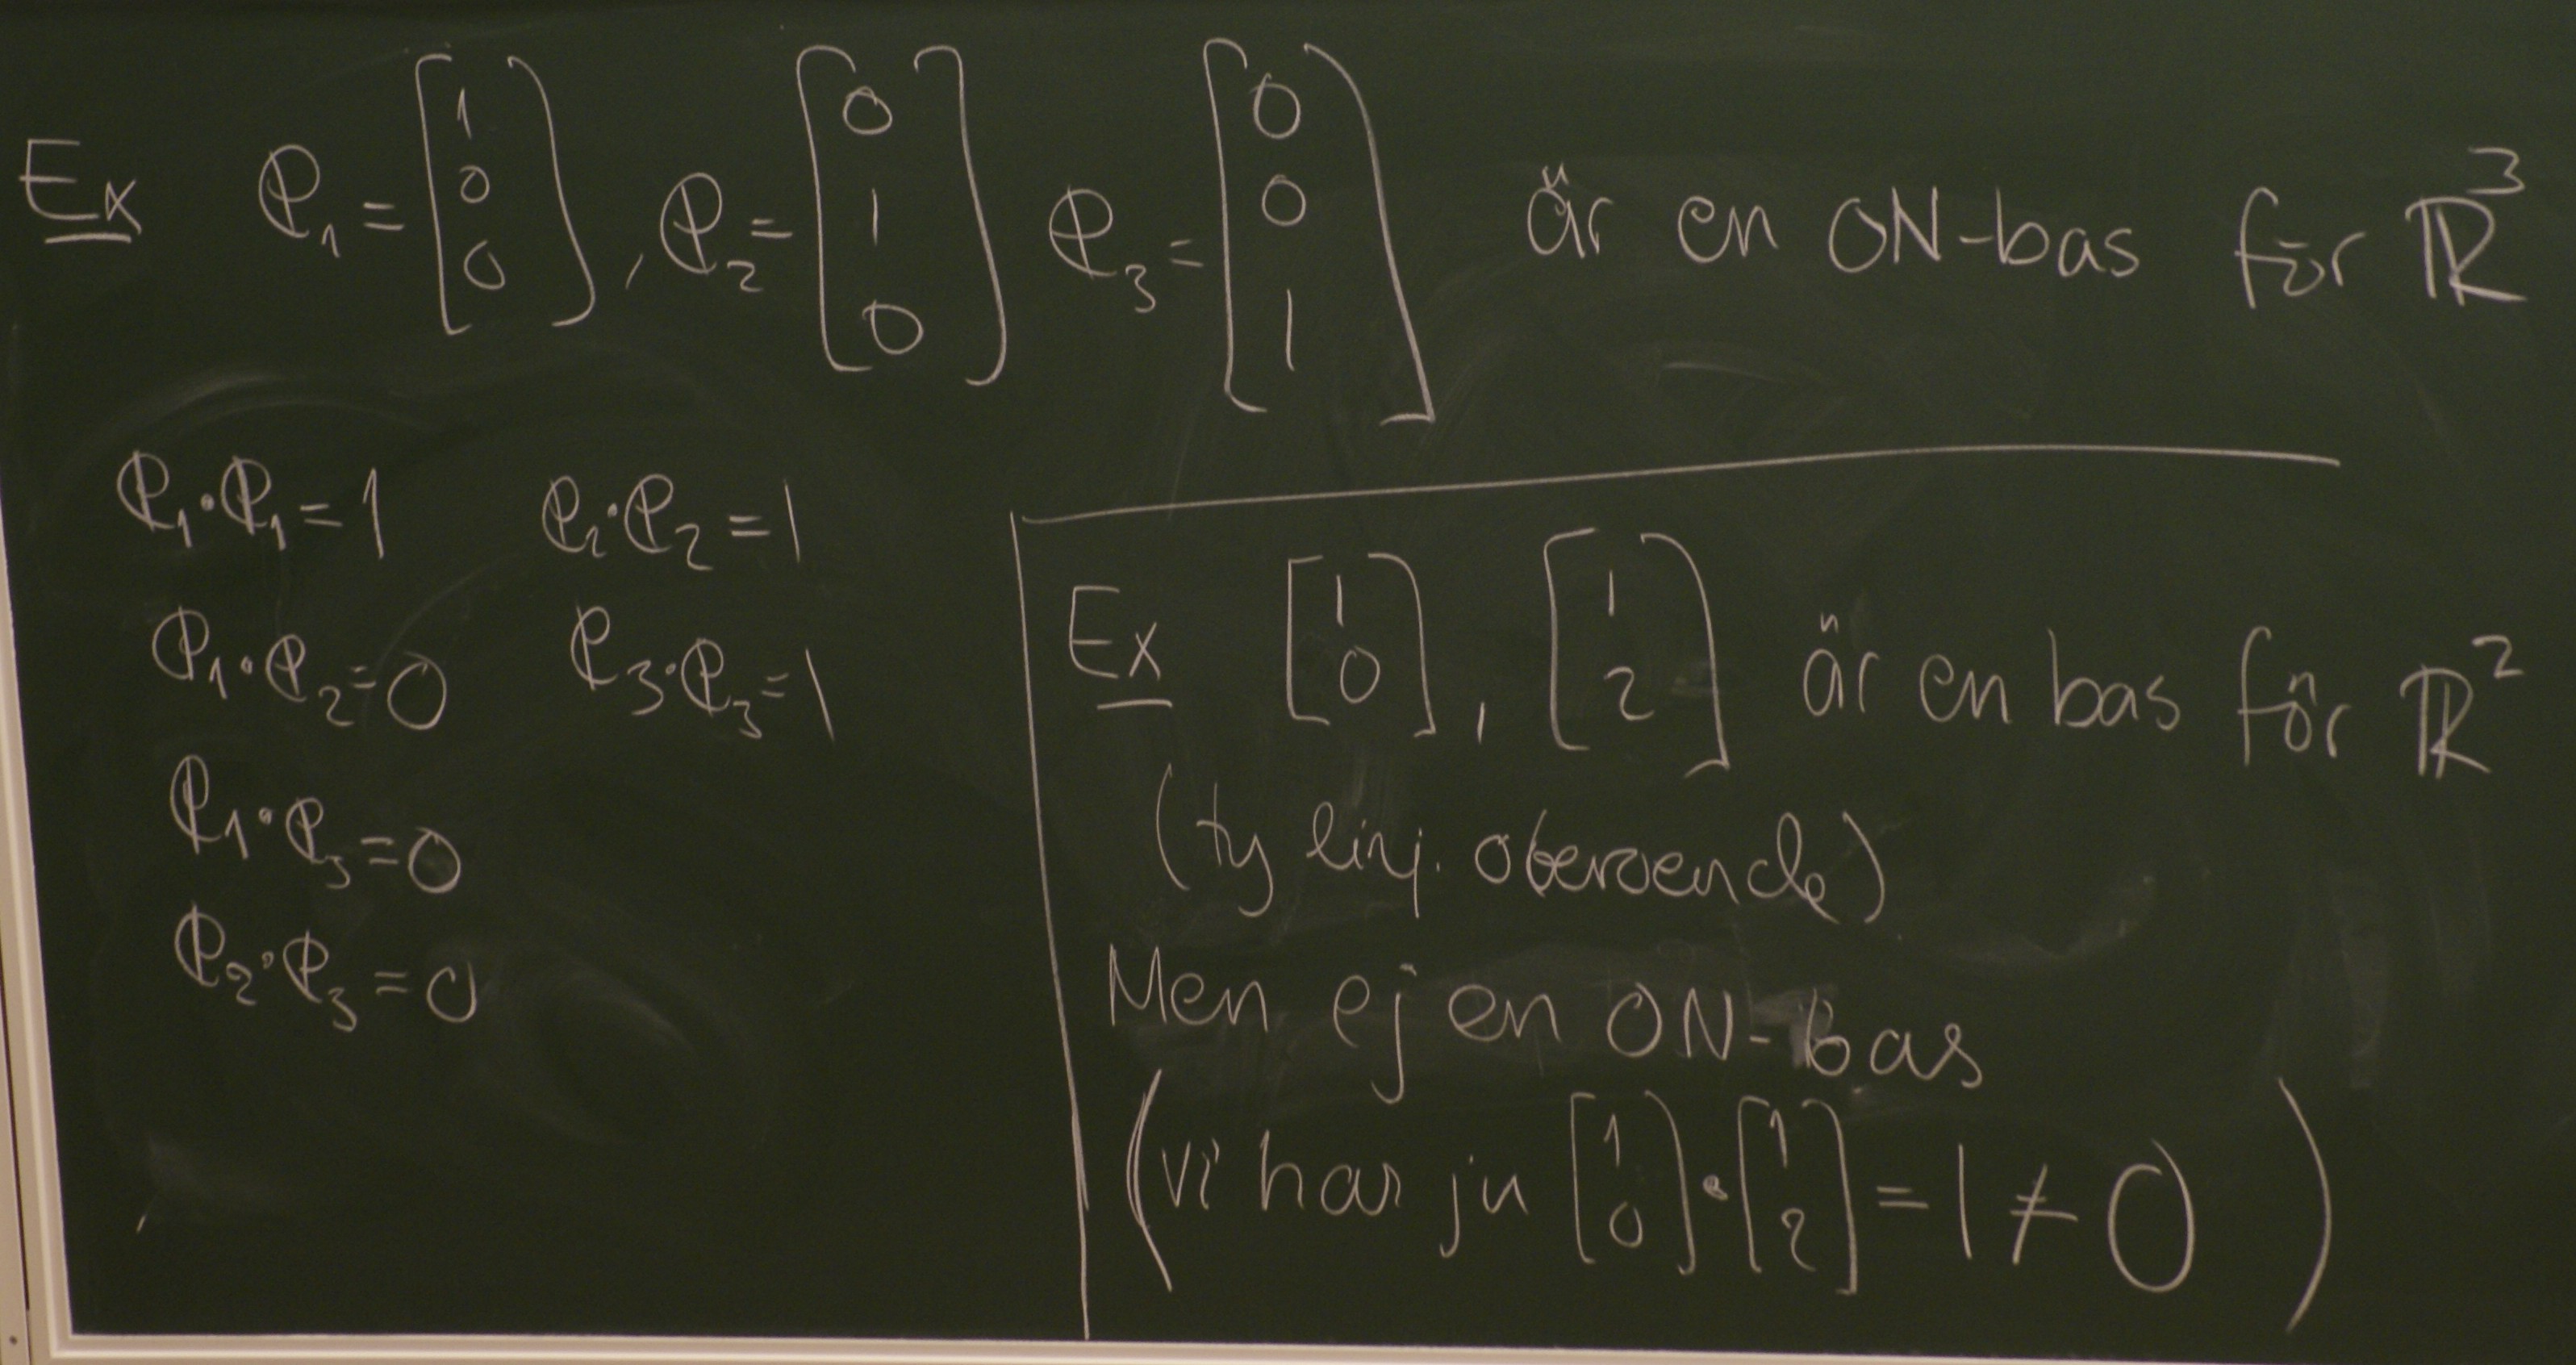 Ex e₁ = [1 0 0], e₂ = [0 1 0] e₃ = [0 0 1] är en ON-bas för ℝ³
e₁·e₁ = 1 e₂·e₂ = 1
e₁·e₂ = 0 e₃·e₃ = 1
e₁·e₃ = 0
e₂·e₃ = 0
Ex [1 0], [1 2] är en bas för ℝ²
(ty linj. oberoende)
Men ej en ON-bas
(vi har ju [1 0]·[1 2] = 1 ≠ 0)